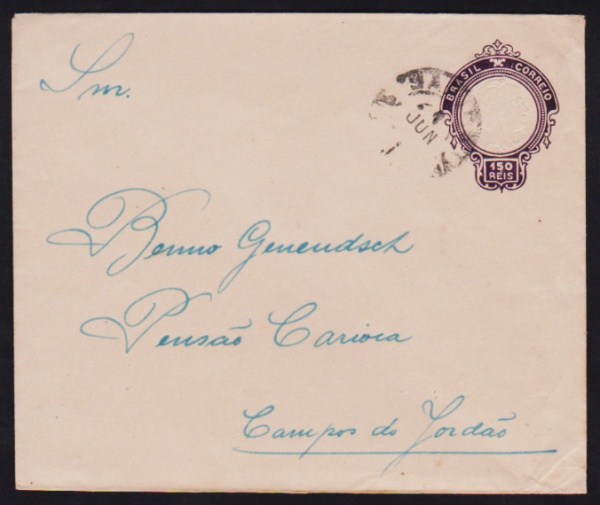 Snr.
BRASIL CORREIO
150
REIS
JUN
Benno Genendsch
Pensão Carioca
Campos do Jordão